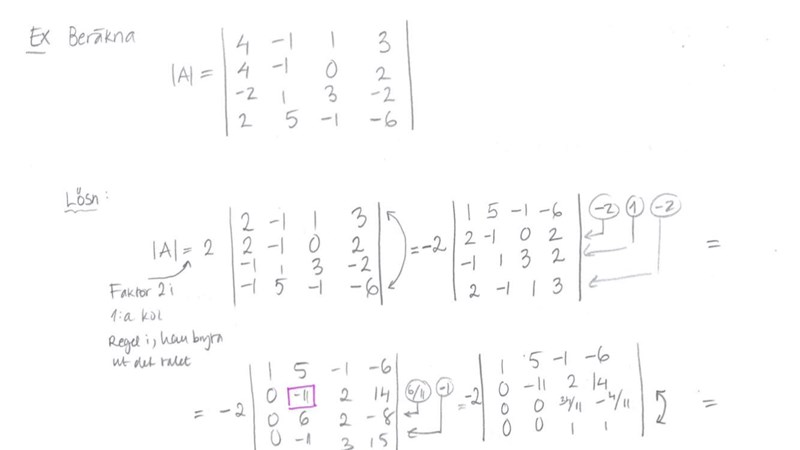 Ex Beräkna
|A| = | 4 -1 1 3 |
| 4 -1 0 2 |
| -2 1 3 -2 |
| 2 5 -1 -6 |
Lösn:
|A| = 2 | 2 -1 1 3 | = -2 | 1 5 -1 -6 | -2 1 -2 =
| 2 -1 0 2 | | 2 -1 0 2 |
| -1 1 3 -2 | | -1 1 3 2 |
| -1 5 -1 -6 | | 2 -1 1 3 |
Faktor 2 i
1:a kol
Regel i, kan bryta
ut det talet
= -2 | 1 5 -1 -6 | = -2 | 1 5 -1 -6 | =
| 0 -11 2 14 | 6/11 -1 | 0 -11 2 14 |
| 0 6 2 -8 | | 0 0 34/11 -4/11 |
| 0 -11 3 15 | | 0 0 1 1 |